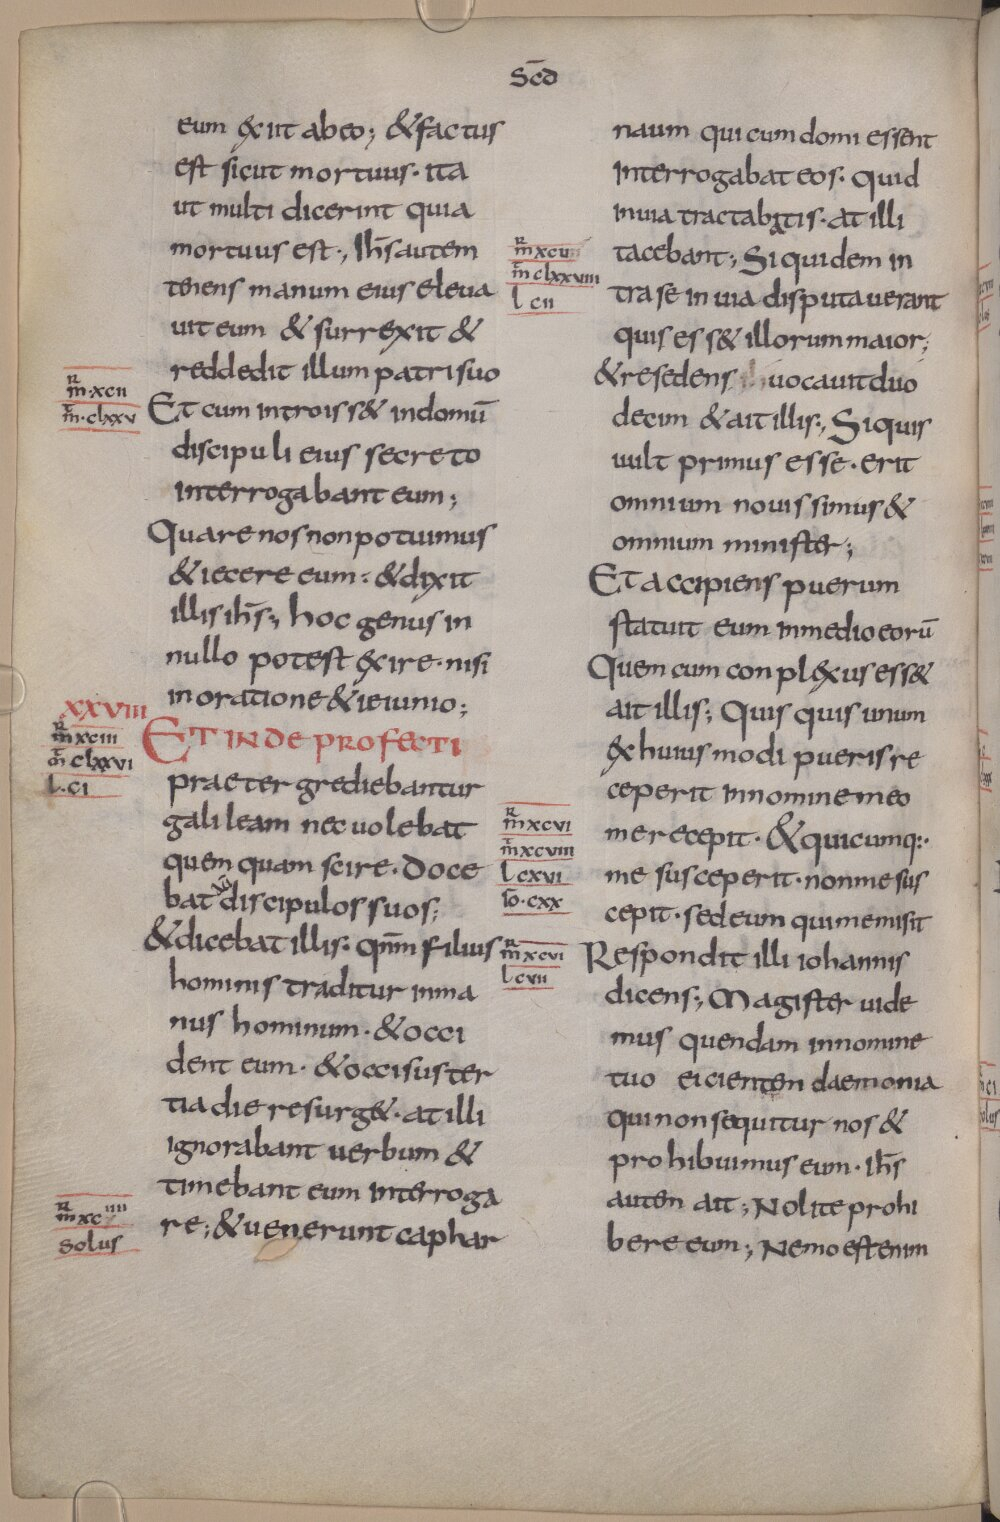 Scd̄
eum exiit abeo; &factus
est sicut mortuus· ita
ut multi dicerint quia
mortuus est·, Ih̄s autem
tenens manum eius eleua
uit eum & surrexit &
reddedit illum patri suo
R
m̄·xcii
m̄·clxxv
Et cum introiss& in domū
discipuli eius secreto
interrogabant eum;
Quare nos non potuimus
&iecere eum: &dixit
illis ih̄s·, hoc genus in
nullo potest exire· nisi
in oratione &ieiunio;
xxviii
R
m̄ xciii
m̄ clxxvi
l·ci
ET INDE PROFECTI
praeter grediebantur
galileam nec uolebat
quem quam scire· Doce
bat discipulos suos;
&dicebat illis: qnm̄ filius
hominis traditur in ma
nus hominum· &occi
dent eum· &occisus ter
tia die resurg&· at illi
ignorabant uerbum &
timebant eum interroga
re; &uenerunt caphar
R
m̄ xciiii
solus
naum qui cum domi essent
interrogabat eos· Quid
in uia tractabitis· at illi
tacebant·, Siquidem in
tra se in uia disputauerant
quis ess& illorum maior;
R
m̄ xcu
m̄ clxxuiii
l cii
&residens uocauit duo
decim &ait illis·, Siquis
uult primus esse· erit
omnium nouissimus &
omnium minister;
Et accipiens puerum
statuit eum in medio eorū
Quem cum conplexus ess&
ait illis; Quis quis unum
ex huius modi pueris re
ceperit in nomine meo
me recepit· &quicumq:·
me susceperit· non me sus
cepit· sed eum qui me misit
R
m̄ xcvi
m̄ xcviii
l cxvi
Io·cxx
R
m̄ xcvi
l cvii
Respondit illi iohannis
dicens·, Magister uide
mus quendam in nomine
tuo eicienten daemonia
qui non sequitur nos &
prohibuimus eum· ih̄s
auten ait·, Nolite prohi
bere eum·, Nemo est enim